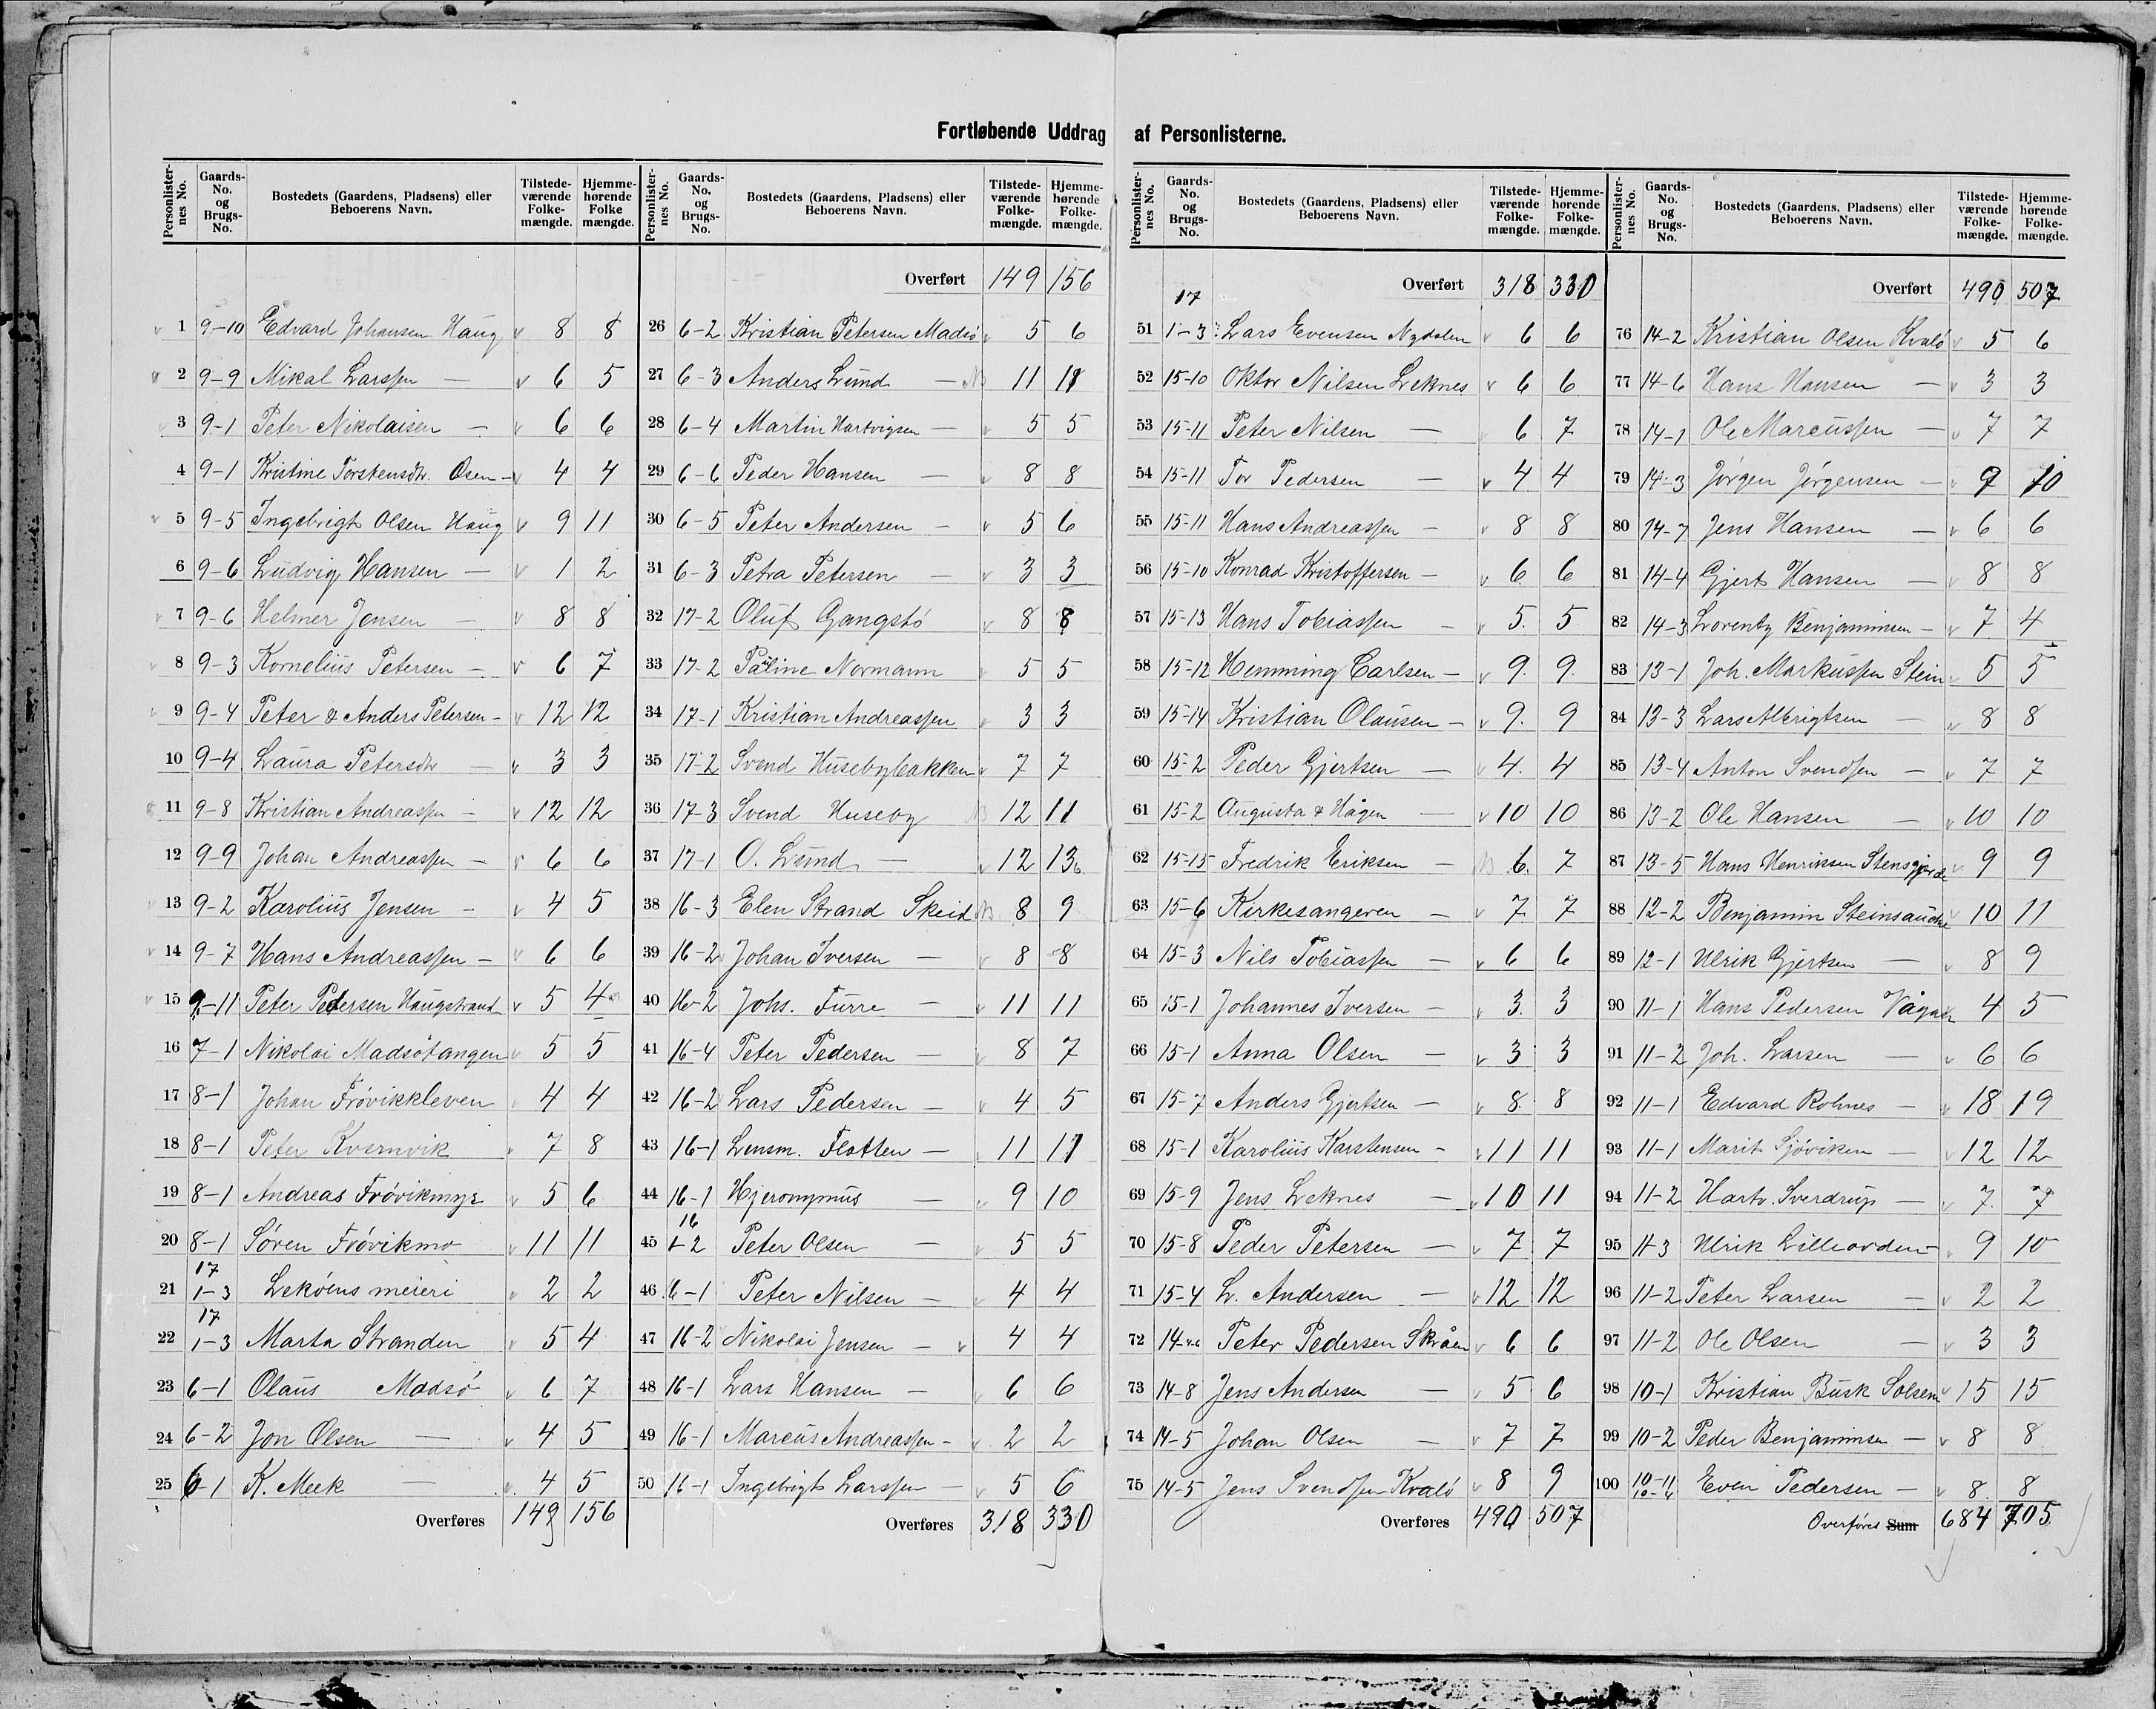 Fortløbende Uddrag af Personlisterne.
Personlisternes No. Gaards-No. og Brugs-No. Bostedets (Gaardens, Pladsens) eller Beboerens Navn. Tilstedeværende Folkemængde. Hjemmehørende Folkemængde.
1 9-10 Edvard Johansen Haug v 8 8
2 9-9 Mikal Larssen — v 6 5
3 9-1 Peter Nikolaisen — v 6 6
4 9-1 Kristine Torstensdtr. Osen - v 4 4
5 9-5 Ingebrigt Olsen Haug v 9 11
6 9-6 Ludvig Hansen — v 1 2
7 9-6 Helmer Jensen — v 8 8
8 9-3 Kornelius Petersen — v 6 7
9 9-4 Peter & Anders Petersen - v 12 12
10 9-4 Laura Petersdtr — v 3 3
11 9-8 Kristian Andreassen — v 12 12
12 9-9 Johan Andreassen — v 6 6
13 9-2 Karolius Jensen - v 4 5
14 9-7 Hans Andreassen - v 6 6
15 9-11 Peter Pedersen Haugstrand v 5 4
16 7-1 Nikolai Madsøtangen v 5 5
17 8-1 Johan Frøvikkleven v 4 4
18 8-1 Peter Kvernvik v 7 8
19 8-1 Andreas Frøvikmyr v 5 6
20 8-1 Søren Frøvikmo v 11 11
21 17 1-3 Lekøens meieri v 2 2
22 17 1-3 Marta Stranden v 5 4
23 6-1 Olaus Madsø v 6 7
24 6-2 Jon Olsen — v 4 5
25 6-1 K. Meek — v 4 5
Overføres 149 156
Overført 149 156
26 6-2 Kristian Petersen Madsø v 5 6
27 6-3 Anders Lund — 11 11
28 6-4 Martin Hartvigsen — v 5 5
29 6-6 Peder Hansen — v 8 8
30 6-5 Peter Andersen — v 5 6
31 6-3 Petra Petersen — v 3 3
32 17-2 Oluf Gangstø v 8 8
33 17-2 Pauline Normann v 5 5
34 17-1 Kristian Andreassen v 3 3
35 17-2 Svend Husebybakken v 7 7
36 17-3 Svend Huseby 12 11
37 17-1 O. Lund — v 12 13
38 16-3 Elen Strand Skeid 8 9
39 16-2 Johan Iversen — v 8 8
40 16-2 Johs. Furre — v 11 11
41 16-4 Peter Pedersen — v 8 7
42 16-2 Lars Pedersen — v 4 5
43 16-1 Lensm. Flotten — v 11 11
44 16-1 Hjeronymus — v 9 10
45 16 1-2 Peter Olsen — v 5 5
46 6-1 Peter Nilsen — v 4 4
47 16-2 Nikolai Jensen — v 4 4
48 16-1 Lars Hansen — v 6 6
49 16-1 Marcus Andreassen - v 2 2
50 16-1 Ingebrigt Larssen — v 5 6
Overføres 318 330
Overført 318 330
51 17 1-3 Lars Evensen Nydalen v 6 6
52 15-10 Oktav Nilsen Leknes v 6 6
53 15-11 Peter Nilsen — v 6 7
54 15-11 Tor Pedersen — v 4 4
55 15-11 Hans Andreassen — v 8 8
56 15-10 Konrad Kristoffersen — v 6 6
57 15-13 Hans Tobiassen — v 5 5
58 15-12 Hemming Carlsen — v 9 9
59 15-14 Kristian Olausen — v 9 9
60 15-2 Peder Gjertsen — v 4 4
61 15-2 Augusta & Hågen — v 10 10
62 15-15 Fredrik Eriksen — 6 7
63 15-6 Kirkesangeren — v 7 7
64 15-3 Nils Tobiassen — v 6 6
65 15-1 Johannes Iversen — v 3 3
66 15-1 Anna Olsen — v 3 3
67 15-7 Anders Gjertsen — v 8 8
68 15-1 Karolius Karstensen - v 11 11
69 15-9 Jens Leknes — v 10 11
70 15-8 Peder Petersen — v 7 7
71 15-4 L. Andersen — v 12 12
72 14-4-6 Peter Pedersen Skråen v 6 6
73 14-8 Jens Andersen — v 5 6
74 14-5 Johan Olsen — v 7 7
75 14-5 Jens Svendsen Kvalø v 8 9
Overføres 490 507
Overført 490 507
76 14-2 Kristian Olsen Kvalø v 5 6
77 14-6 Hans Hansen — v 3 3
78 14-1 Ole Marcussen — v 7 7
79 14-3 Jørgen Jørgensen — v 9 10
80 14-7 Jens Hansen — v 6 6
81 14-4 Gjert Hansen — v 8 8
82 14-3 Lorentz Benjaminsen — v 7 4
83 13-1 Joh. Markussen Stein v 5 5
84 13-3 Lars Albrigtsen — v 8 8
85 13-4 Anton Svendsen — v 7 7
86 13-2 Ole Hansen — v 10 10
87 13-5 Hans Henriksen Stensgjerde v 9 9
88 12-2 Benjamin v 10 11
89 12-1 Ulrik Gjertsen — v 8 9
90 11-1 Hans Pedersen v 4 5
91 11-2 Joh. Larsen — v 6 6
92 11-1 Edvard Rohnes — v 18 19
93 11-1 Marit Sjøviken — v 12 12
94 11-2 Hartv. Sverdrup — v 7 7
95 11-3 Ulrik v 9 10
96 11-2 Peter Larsen — v 2 2
97 11-2 Ole Olsen — v 3 3
98 10-1 Kristian Busk Solsem v 15 15
99 10-2 Peder Benjaminsen — v 8 8
100 10-11 10-4 Even Pedersen — v 8 8
Overføres Sum 684 705